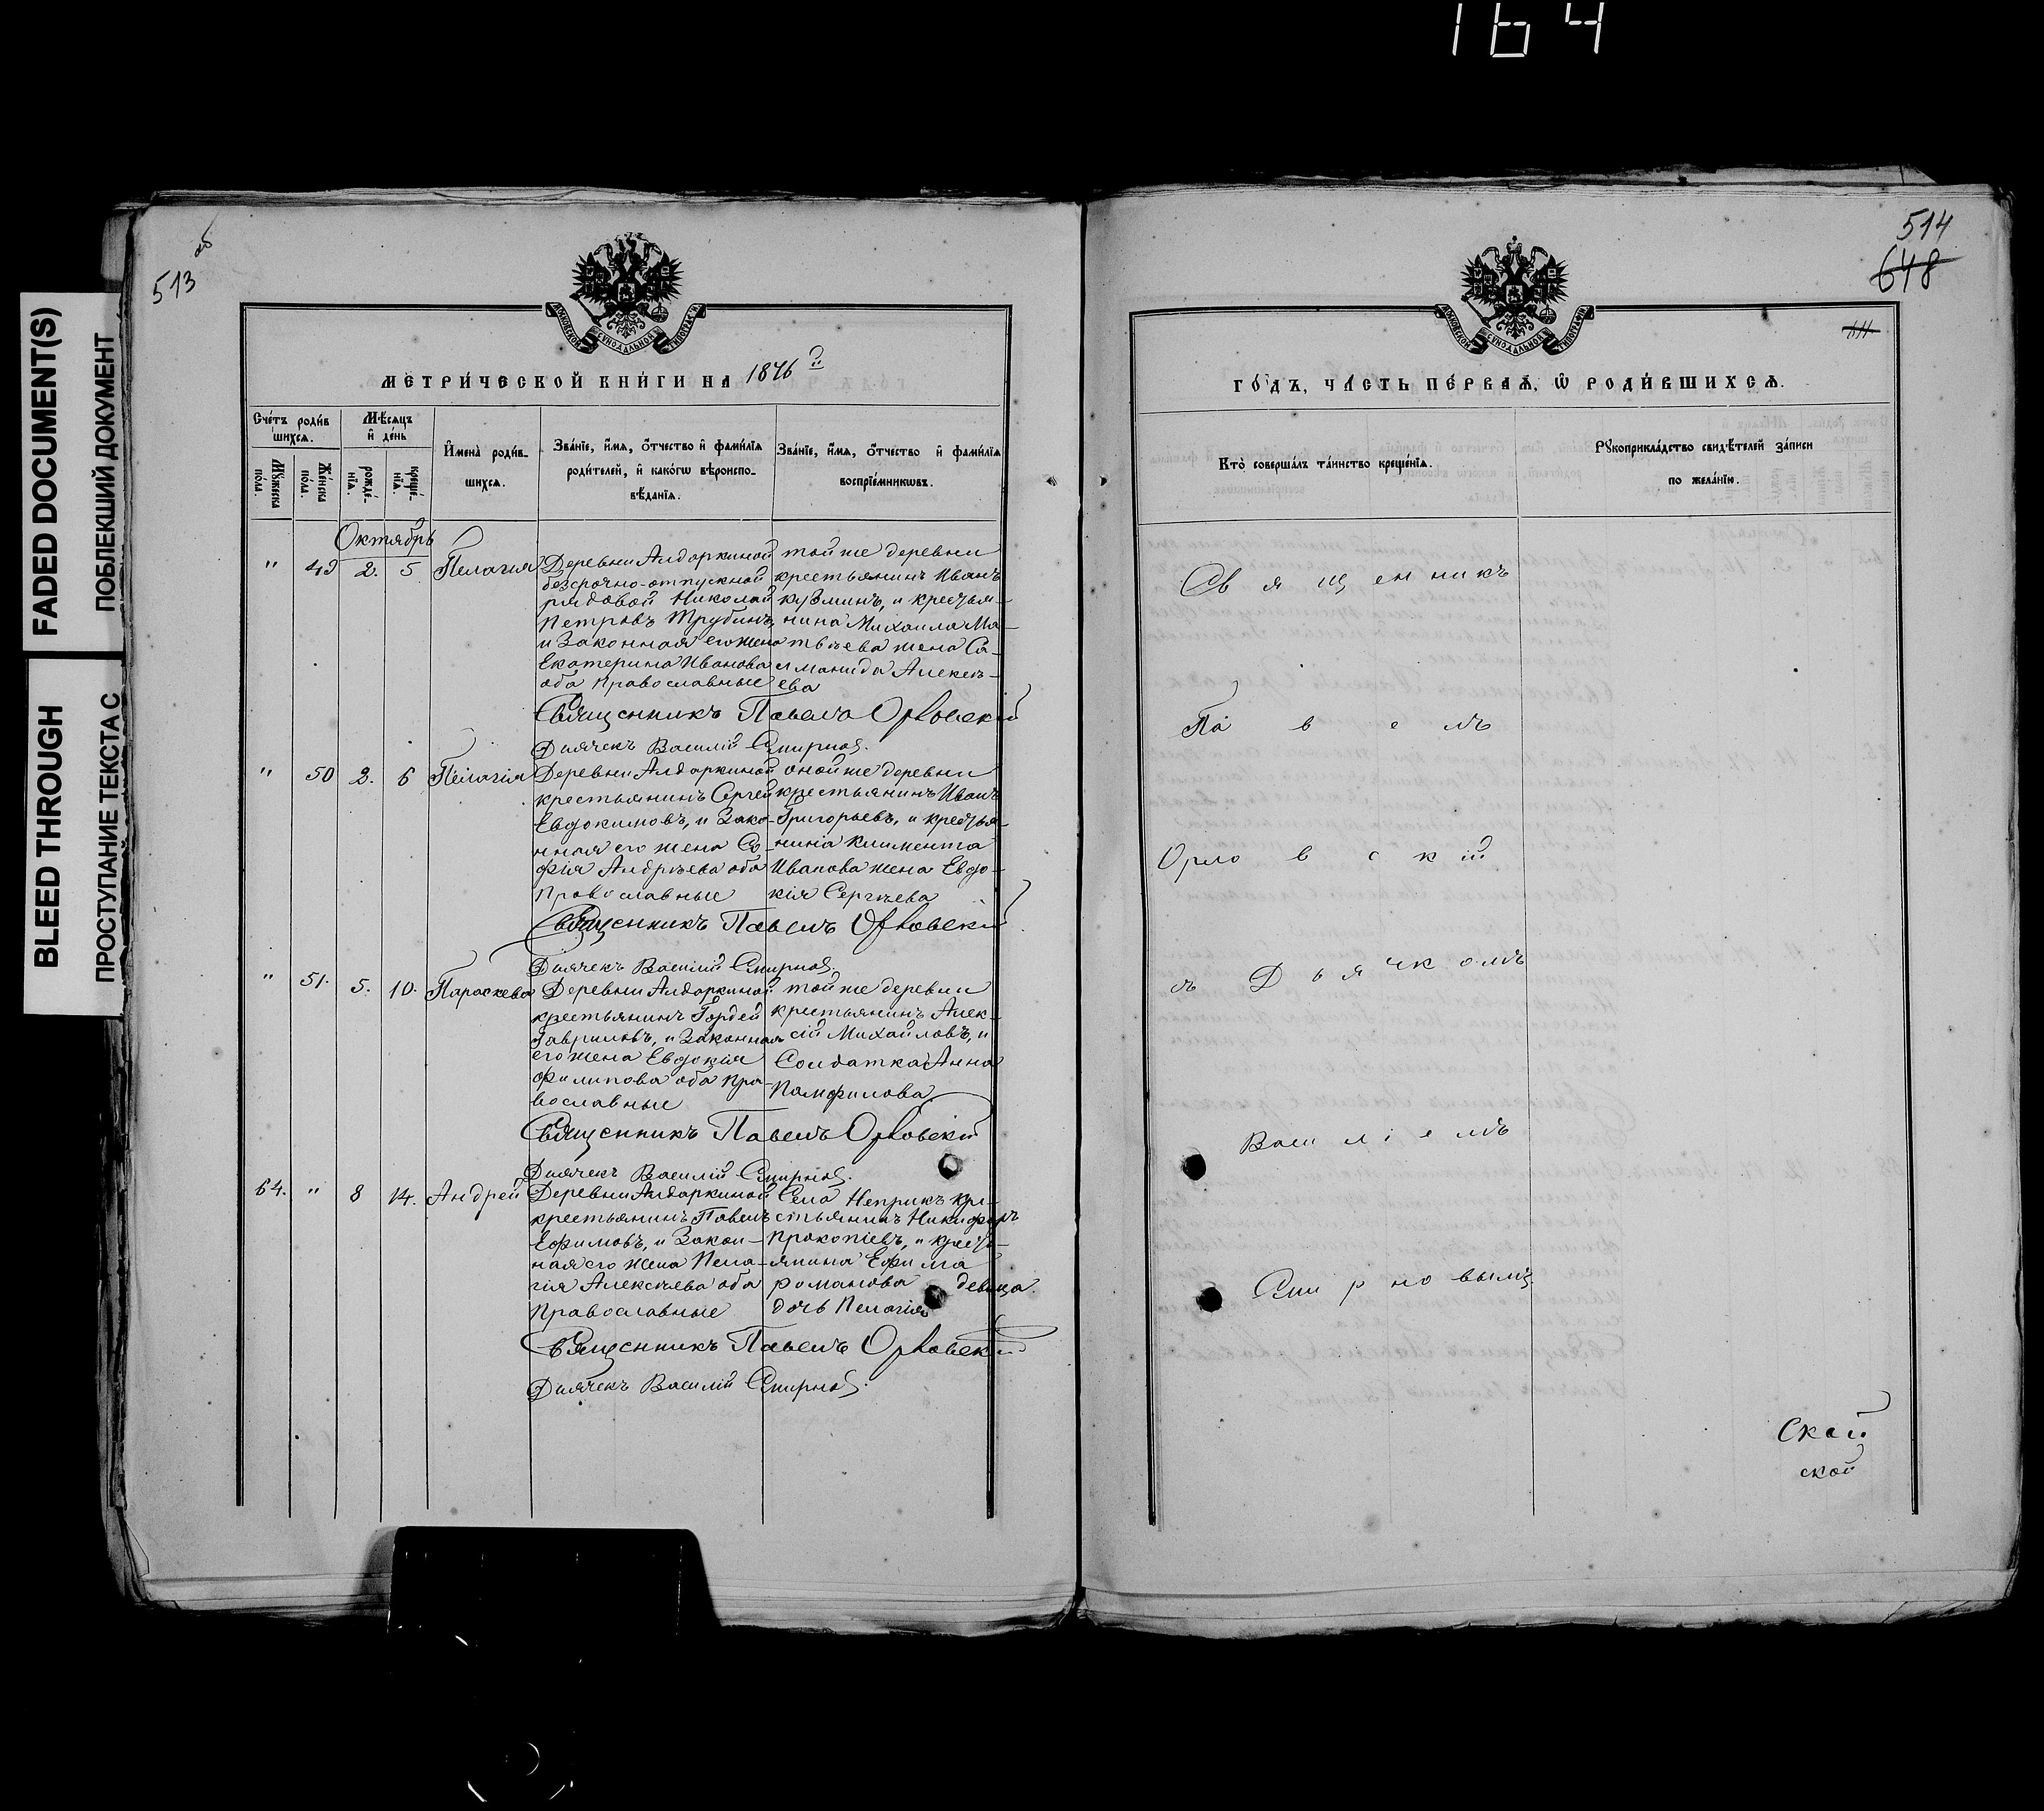 164
FADED DOCUMENT(S)
ПОБЛЕКШИЙ ДОКУМЕНТ
BLEED THROUGH
ПРОСТУПАНИЕ ТЕКСТА С
об
513
МЕТРИ́ЧЕСКОЙ КНИ́ГИ НА 1876й
Сче́тъ роди́в
шихся.
Мѣ́сяцъ
и҆ де́нь
Мꙋ́жеска
по́ла.
Же́нска
по́ла.
рожде́-
нїѧ.
креще́-
нїѧ.
И҆мена̀ роди́в-
шихся.
Зва́нїе, и҆́мѧ, ѻ҆́тчество и҆ фами́лїѧ
роди́телей, и҆ како́гѡ вѣроиспо-
вѣ́данїѧ.
Зва́нїе, и҆́мѧ, ѻ҆́тчество и҆ фами́лїѧ
воспрїе́мникѡвъ.
Октябрь
" 49 2. 5 Пелагия
Деревни Алдаркиной
безсрочно-отпускной
рядовой Николай
Петровъ Трубинъ,
и Законная его жена
Екатерина Иванова
оба Православные
той же деревни
крестьянинъ Иванъ
Кузминъ, и крестья-
нина Михаила Ма-
твѣева жена Са-
ломанида Алексѣ-
ева
Священникъ Павелъ Орловскій
Дьячекъ Василій Смирнов.
" 50 2. 6 Пелагія
Деревни Алдаркиной
крестьянинъ Сергей
Евдокимовъ, и Зако-
нная его жена Со-
фія Андрѣева оба
Православные
оной же деревни
крестьянинъ Иванъ
Григорьевъ, и крестья-
нина Климента
Иванова жена Евдо-
кія Сергѣева
Священникъ Павелъ Орловскій
Дьячекъ Василій Смирнов.
" 51. 5. 10. Параскева
Деревни Алдаркиной
крестьянинъ Гордей
Гавриловъ, и Законная
его жена Евдокія
Филипова оба Пра-
вославные
той же деревни
крестьянинъ Алек-
сій Михайловъ, и
Солдатка Анна
Памфилова
Священникъ Павелъ Орловскій
Дьячекъ Василій Смирнов.
64. " 8 14. Андрей
Деревни Алдаркиной
крестьянинъ Павелъ
Ефимовъ, и Закон-
ная его жена Пела-
гія Алексѣева оба
Православные
Села Неприкъ кре-
стьянинъ Никифоръ
Прокопіевъ, и кресть-
янина Ефима
романова девица
дочь Пелагія
Священникъ Павелъ Орловскій
Дьячекъ Василій Смирнов.
514
648
ГО́ДЪ, ЧА́СТЬ ПЕ́РВАѦ, Ѡ҆ РОДИ́ВШИХСѦ.
Кто̀ соверша́лъ та́инство креще́нїѧ.
Рꙋкоприкла́дство свидѣ́телей за́писи
по жела́нїю.
Священникъ
Павелъ
Орловскій
съ Дьячкомъ
Василіемъ
Смирновымъ
ской
ской